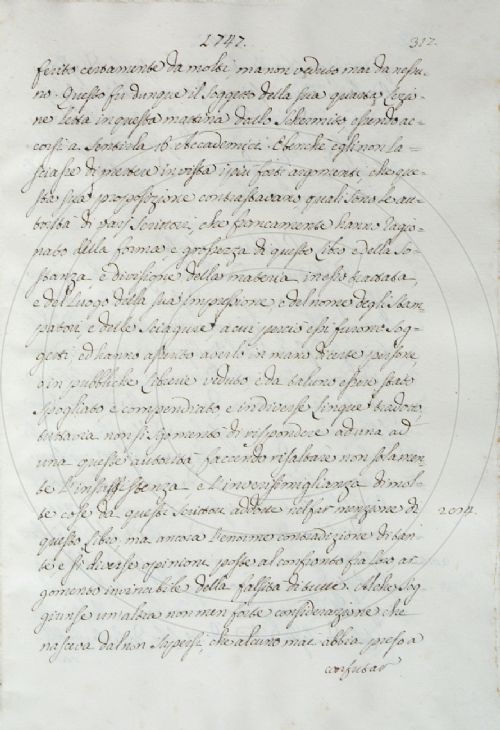 1747. 312.
ferito certamente da molti, ma non veduto mai da nessu=
no. Questo fù dunque il soggetto della sua quarta Lezio=
ne letta in questa matina dallo Schermito essendo ac=
corsi a sentirla 16. Accademici. E benchè egli non la=
sciasse di mettere in vista i più forti argomenti, che que=
sta sua proposizione contrastavano quali sono le au=
torità di varj Scrittori, che francamente hanno ragio=
nato della forma, e grossezza di questo Libro, e della So=
stanza, e divisione della materia in esso trattata,
e del Luogo della sua Impressione, e del nome degli Stam=
patori, e delle Sciagure, a cui perciò essi furono Sog=
getti, ed hanno asserito averlo in mano di certe persone,
o in pubbliche Librerie veduto, e da taluno essere stato
spogliato, e compendiato, e in diverse lingue tradotto,
tuttavia non si sgomentò di rispondere ad una ad
una queste autorità facendo risaltare non solamen=
te l'insussistenza, e l'inverisimiglianza di mol=
te cose da questi Scrittori addotte nel far menzione di 2014.
questo Libro, ma ancora l'enorme contradizione di tan=
te e sì diverse opinioni poste al confronto fra loro ar=
gomento invincibile della falsità di tutte. Al che sog=
giunse un'altra non men forte considerazione che
nasceva dal non sapersi, che alcuno mai abbia preso a
confutar